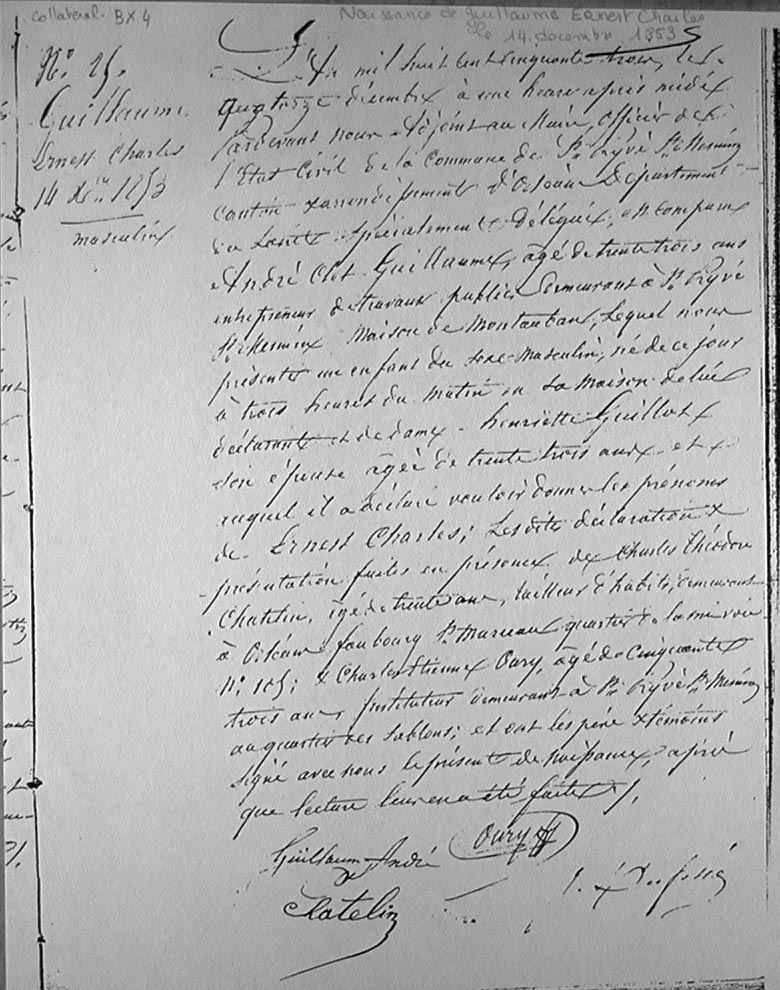 collateral. BX4
Naissance de Guillaume Ernest Charles
le 14 decembre 1853
N° 25.
Guillaume
Ernest Charles
14 Xbre 1853
masculin
L'An mil huit cent cinquante trois, le
quatorze décembre à une heure après midi
Pardevant nous Adjoint au Maire, officier de
l'Etat Civil de la Commune de St Pryvé St Mesmin
canton & arrondissement d'Orléans Département
du Loiret spécialement délégué, est comparu
André Clet Guillaume, âgé de trente trois ans
entrepreneur de travaux publics demeurant à St Pryvé
St Mesmin Maison de Montauban, Lequel nous
présente un enfant du sexe Masculin, né de ce jour
à trois heures du matin en sa maison de lui
déclarant et de dame Henriette Guillot
son épouse âgée de trente trois ans et
auquel il a déclaré vouloir donner les prénoms
de Ernest Charles; Lesdites déclaration &
présentation faites en présence de Charles Théodore
Chatelin, âgé de trente ans, tailleur d'habits, demeurant
à Orléans faubourg St Marceau quartier de la
N° 105; & Charles Etienne Oury, âgé de cinquante
trois ans Instituteur demeurant à St Pryvé St Mesmin
au quartier des Sablons; et ont les père & témoins
signé avec nous le présent de naissance, après
que lecture leur en a été faite /.
Guillaume André Oury
Chatelin